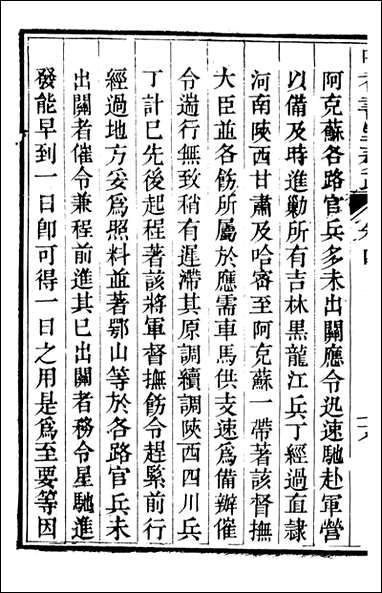 阿克蘇各路官兵多未出關應令迅速馳赴軍營
以備及時進勦所有吉林黑龍江兵丁經過直隸
河南陝西甘肅及哈密至阿克蘇一帶著該督撫
大臣並各飭所屬於應需車馬供支速爲備辦催
令遄行無致稍有遲滯其原調續調陝西四川兵
丁計已先後起程著該將軍督撫飭令趕緊前行
經過地方妥爲照料並著鄂山等於各路官兵未
出關者催令兼程前進其已出關者務令星馳進
發能早到一日卽可得一日之用是爲至要等因